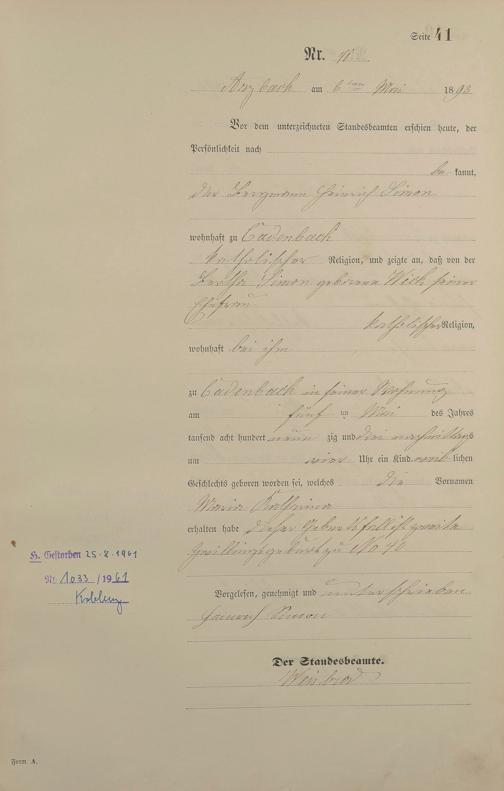 Seite 41
Nr. 11
Arzbach am 6ten Mai 1893
Vor dem unterzeichneten Standesbeamten erschien heute, der
Persönlichkeit nach
be kannt,
der Bergmann Heinrich Simon
wohnhaft zu Cadenbach
katholischer Religion, und zeigte an, daß von der
Bertha Simon geborene seiner
Ehefrau
katholischer Religion,
wohnhaft bei ihm
zu Cadenbach in seiner Wohnung
am fünf ten Mai des Jahres
tausend acht hundert neun zig und drei nachmittags
um vier Uhr ein Kind weib lichen
Geschlechts geboren worden sei, welches die Vornamen
Maria Katharina
erhalten habe dieser Geburtsfall ist zweite
Zwillingsgeburt zu No 10
Vorgelesen, genehmigt und unterschrieben
Heinrich Simon
Der Standesbeamte.
Weisbrod
H. Gestorben 25-8-1961
Nr. 1033/1961
Koblenz
Form A.